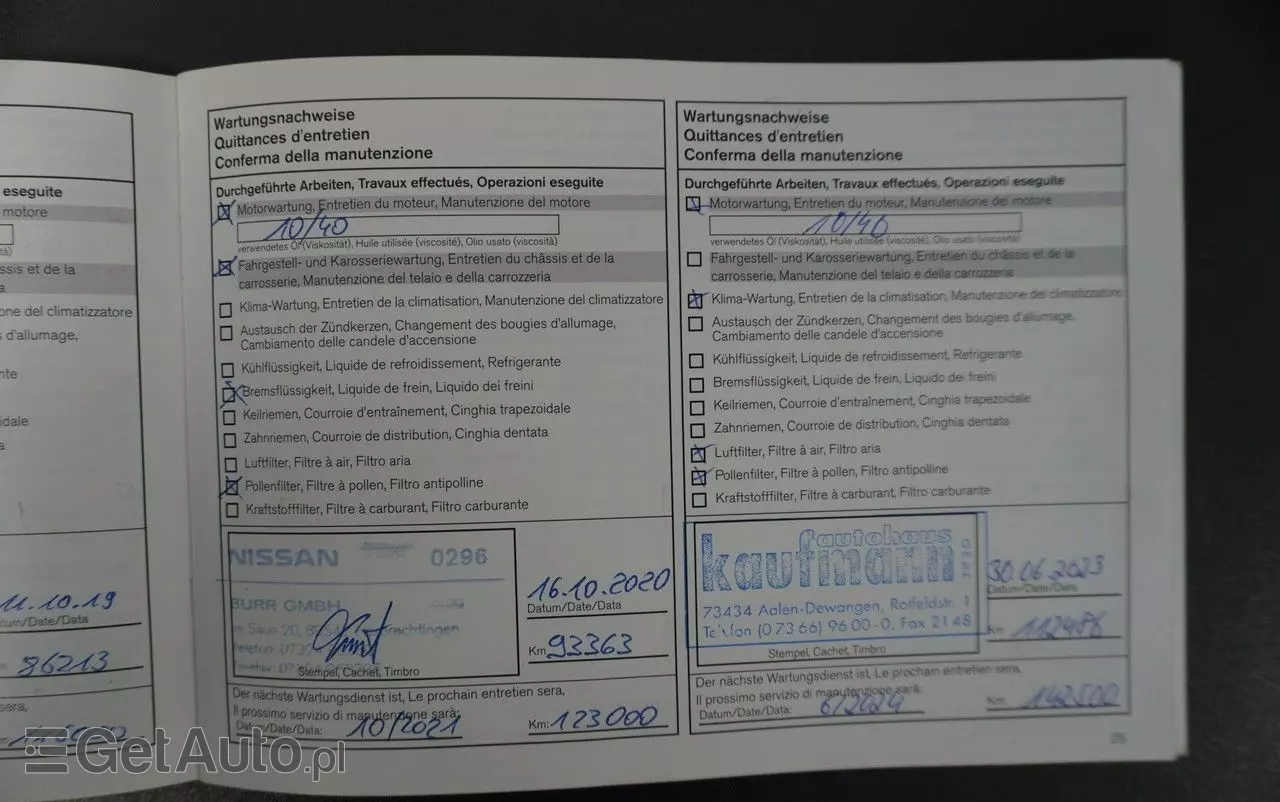 eseguite
motore
ssis et de la
one del climatizzatore
d'allumage,
nte
idale
11.10.19
tum/Date/Data
86213
sera,
Wartungsnachweise
Quittances d'entretien
Conferma della manutenzione
Durchgeführte Arbeiten, Travaux effectués, Operazioni eseguite
Motorwartung, Entretien du moteur, Manutenzione del motore
10/40
verwendetes Öl (Viskosität), Huile utilisée (viscosité), Olio usato (viscosità)
Fahrgestell- und Karosseriewartung, Entretien du châssis et de la
carrosserie, Manutenzione del telaio e della carrozzeria
Klima-Wartung, Entretien de la climatisation, Manutenzione del climatizzatore
Austausch der Zündkerzen, Changement des bougies d'allumage,
Cambiamento delle candele d'accensione
Kühlflüssigkeit, Liquide de refroidissement, Refrigerante
Bremsflüssigkeit, Liquide de frein, Liquido dei freini
Keilriemen, Courroie d'entraînement, Cinghia trapezoidale
Zahnriemen, Courroie de distribution, Cinghia dentata
Luftfilter, Filtre à air, Filtro aria
Pollenfilter, Filtre à pollen, Filtro antipolline
Kraftstofffilter, Filtre à carburant, Filtro carburante
NISSAN 0296
BURR GMBH
16.10.2020
Datum/Date/Data
Km 93363
Stempel, Cachet, Timbro
Der nächste Wartungsdienst ist, Le prochain entretien sera,
Il prossimo servizio di manutenzione sarà:
Datum/Date/Data: 10/2021 Km: 123000
Wartungsnachweise
Quittances d'entretien
Conferma della manutenzione
Durchgeführte Arbeiten, Travaux effectués, Operazioni eseguite
Motorwartung, Entretien du moteur, Manutenzione del motore
10/40
verwendetes Öl (Viskosität), Huile utilisée (viscosité), Olio usato (viscosità)
Fahrgestell- und Karosseriewartung, Entretien du châssis et de la
carrosserie, Manutenzione del telaio e della carrozzeria
Klima-Wartung, Entretien de la climatisation, Manutenzione del climatizzatore
Austausch der Zündkerzen, Changement des bougies d'allumage,
Cambiamento delle candele d'accensione
Kühlflüssigkeit, Liquide de refroidissement, Refrigerante
Bremsflüssigkeit, Liquide de frein, Liquido dei freini
Keilriemen, Courroie d'entraînement, Cinghia trapezoidale
Zahnriemen, Courroie de distribution, Cinghia dentata
Luftfilter, Filtre à air, Filtro aria
Pollenfilter, Filtre à pollen, Filtro antipolline
Kraftstofffilter, Filtre à carburant, Filtro carburante
autohaus
kaufmann
73434 Aalen-Dewangen, Rotfeldstr. 1
Telefon (0 73 66) 96 00-0, Fax 21 48
30.06.2023
Datum/Date/Data
Km 112486
Stempel, Cachet, Timbro
Der nächste Wartungsdienst ist, Le prochain entretien sera,
Il prossimo servizio di manutenzione sarà:
Datum/Date/Data: 6/2024 Km: 142500
GetAuto.pl